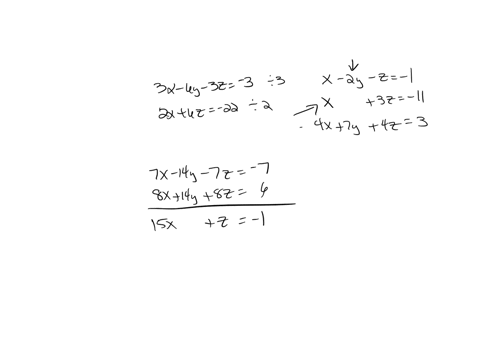 3x-6y-3z=-3 ÷3
2x+6z=-22 ÷2
x-2y-z=-1
x +3z=-11
4x+7y+4z=3
7x-14y-7z=-7
8x+14y+8z=6
15x +z=-1